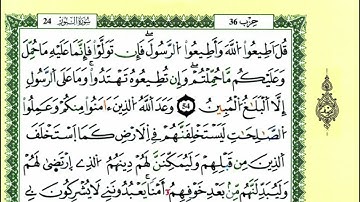 24 سُورَةُ النُّورِ حِزْب 36
قُلَ اَطِيعُوا۟ اُللَّهَ وَأَطِيعُوا۟ اُلرَّسُولَ فَإِن تَوَلَّوْا۟ فَإِنَّمَا عَلَيْهِ مَا حُمِّلَ
وَعَلَيْكُم مَّا حُمِّلْتُمْ وَإِن تُطِيعُوهُ تَهْتَدُوا۟ وَمَا عَلَى اَلرَّسُولِ
إِلَّا اَلْبَلَٰغُ اُلْمُبِينُ 54 وَعَدَ اَللَّهُ اُلذِينَ ءَامَنُوا۟ مِنكُمْ وَعَمِلُوا۟
اُلصَّٰلِحَٰتِ لَيَسْتَخْلِفَنَّهُمْ فِى اِلَارْضِ كَمَا اَسْتَخْلَفَ
اَلذِينَ مِن قَبْلِهِمْ وَلَيُمَكِّنَنَّ لَهُمْ دِينَهُمُ اُلذِے اِ۪رْتَض۪ىٰ لَهُمْ
وَلَيُبَدِّلَنَّهُم مِّنۢ بَعْدِ خَوْفِهِمُۥ أَمْناً يَعْبُدُونَنِے لَا يُشْرِكُونَ بِے